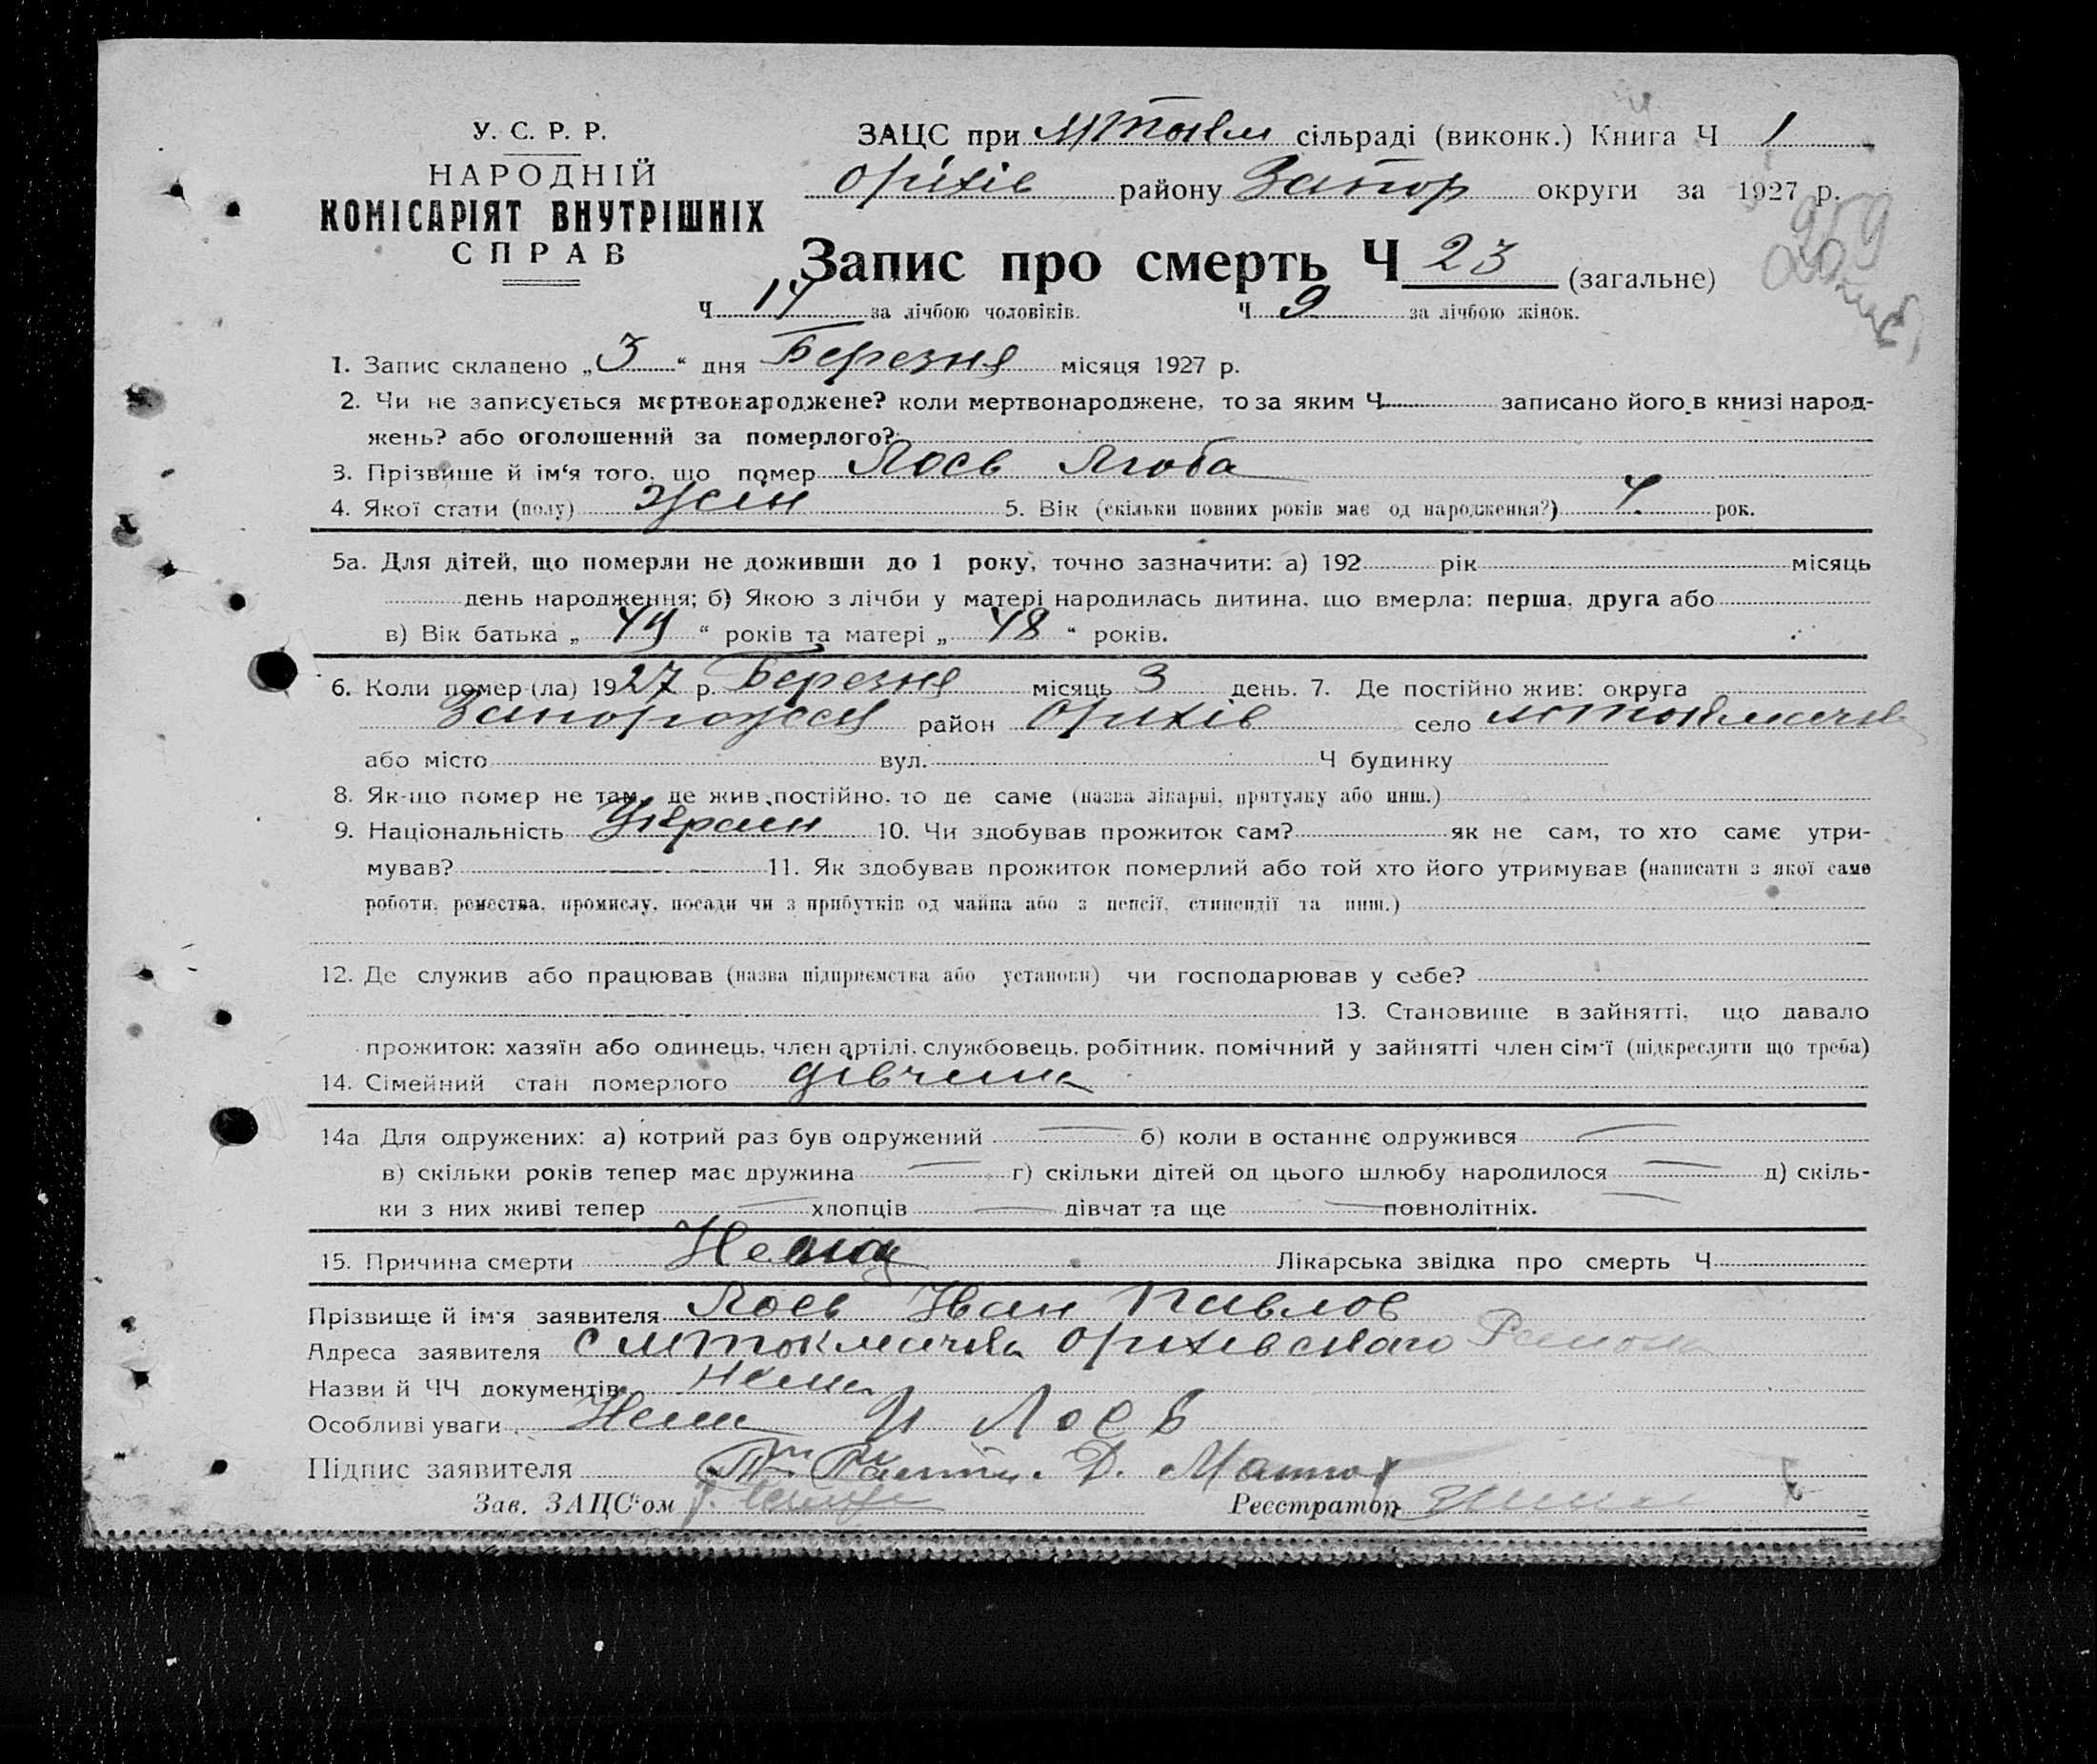 У. С. Р. Р.
НАРОДНІЙ
КОМІСАРІЯТ ВНУТРІШНІХ
СПРАВ
ЗАЦС при МТокм сільраді (виконк.) Книга Ч 1
Оріхів району Запор округи за 1927 р.
Запис про смерть Ч 23 (загальне)
259
Ч 14 за лічбою чоловіків. Ч 9 за лічбою жінок.
1. Запис складено „3“ дня Березня місяця 1927 р.
2. Чи не записується мертвонароджене? коли мертвонароджене, то за яким Ч записано його в книзі народ-
жень? або оголошений за померлого?
3. Прізвище й ім‘я того, що помер Лоєв Люба
4. Якої стати (полу) жін 5. Вік (скільки повних років має од народження?) 4 рок.
5а. Для дітей, що померли не доживши до 1 року, точно зазначити: а) 192 рік місяць
день народження; б) Якою з лічби у матері народилась дитина, що вмерла: перша, друга або
в) Вік батька „49“ років та матері „48“ років.
6. Коли помер (ла) 1927 р. Березня місяць 3 день. 7. Де постійно жив: округа
Запоро район Орихів село
або місто вул. Ч будинку
8. Як-що помер не там, де жив постійно, то де саме (назва лікарні, притулку або инш.)
9. Національність Украин 10. Чи здобував прожиток сам? як не сам, то хто саме утри-
мував? 11. Як здобував прожиток померлий або той хто його утримував (написати з якої саме
роботи, ремества, промислу, посади чи з прибутків од майна або з пенсії, стипендії та инш.)
12. Де служив або працював (назва підприємства або установи) чи господарював у себе?
13. Становище в зайнятті, що давало
прожиток: хазяїн або одинець, член артілі, службовець, робітник, помічний у зайнятті член сім‘ї (підкреслити що треба)
14. Сімейний стан померлого дівчина
14а Для одружених: а) котрий раз був одружений — б) коли в останнє одружився —
в) скільки років тепер має дружина — г) скільки дітей од цього шлюбу народилося — д) скіль-
ки з них живі тепер — хлопців — дівчат та ще — повнолітніх. —
15. Причина смерти Лікарська звідка про смерть Ч
Прізвище й ім‘я заявителя Лоєв Иван Павлов
Адреса заявителя с МТокмачка Орихівского Района
Назви й ЧЧ документів нема
Особливі уваги Нема И Лоев
Підпис заявителя Д.
Зав. ЗАЦС‘ом Реєстратор